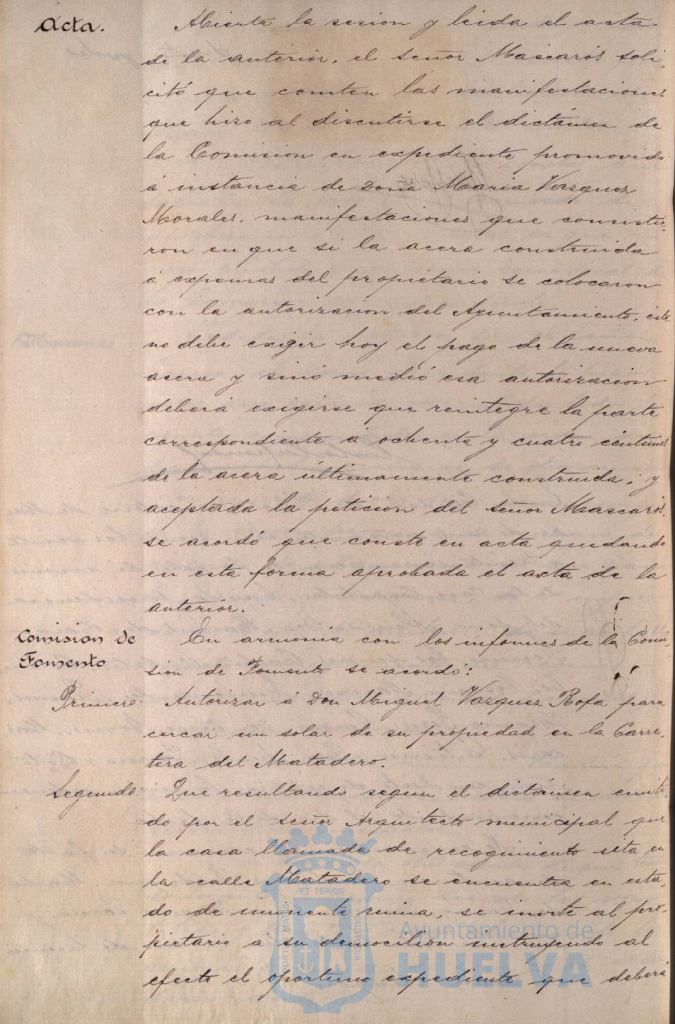 Acta.
Abierta la sesion y leida el acta
de la anterior, el señor Mascarós soli-
citó que consten las manifestaciones
que hizo al discutirse el dictámen de
la Comision en expediente promovido
á instancia de Doña Maria Vazquez
Morales, manifestaciones que consistie-
ron en que si la acera construida
á expensas del propietario se colocaron
con la autorizacion del Ayuntamiento, este
no debe exigir hoy el pago de la nueva
acera y sinó medió esa autorizacion
deberá exigirse que reintegre la parte
correspondiente á ochenta y cuatro céntimos
de la acera últimamente construida; y
aceptada la peticion del señor Mascarós,
se acordó que conste en acta quedando
en esta forma aprobada el acta de la
anterior.
Comision de
Fomento
En armonía con los informes de la Comi-
sion de Fomento se acordó:
Primero: Autorizar á Don Miguel Vazquez Rofa para
cercar un solar de su propiedad en la Carre-
tera del Matadero.
Segundo: Que resultando segun el dictámen emiti-
do por el señor Arquitecto municipal que
la casa llamada de recogimiento sita en
la calle Matadero se encuentra en esta-
do de inminente ruina, se invite al pro-
pietario a su demolicion instruyendo al
efecto el oportuno expediente que deberá
Ayuntamiento de
HUELVA